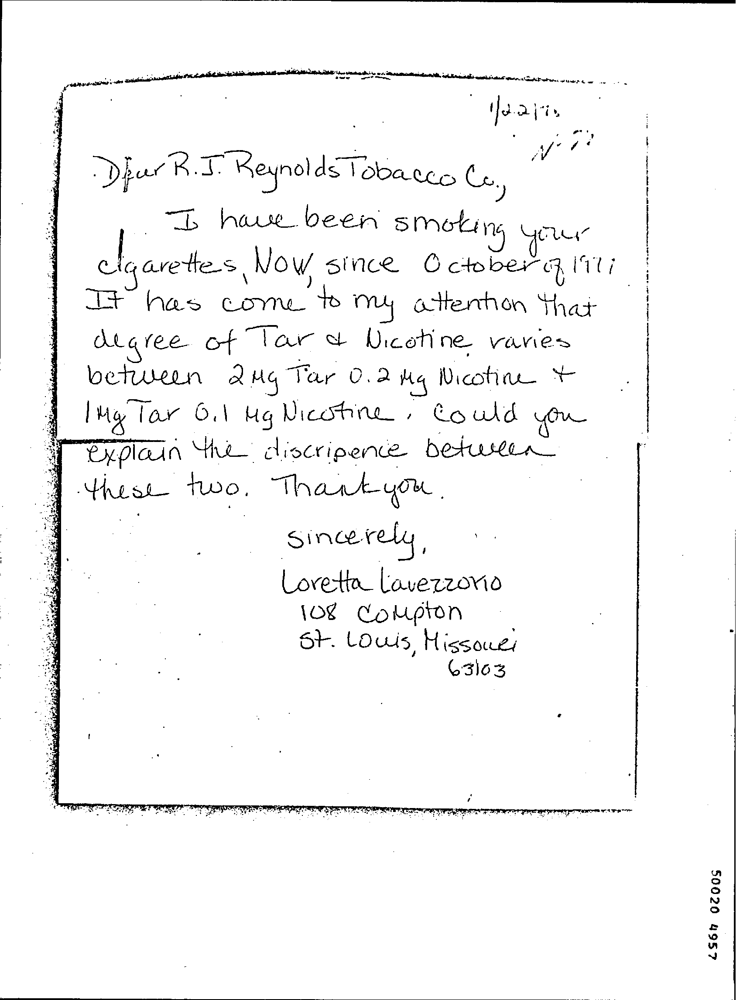 Dear R.J. Reynolds Tobacco Co.,
I have been smoking your
cigarettes, NOW, since October of
It has come to my attention that
degree of Tar & Nicotine varies
between 2 Mg Tar 0.2 Mg Nicotine +
1 Mg Tar 0.1 Mg Nicotine. Could you
explain the discripence between
these two. Thank you.
Sincerely,
Loretta Lavezzorio
108 Compton
St. Louis, Missouri
63103
50020 4957